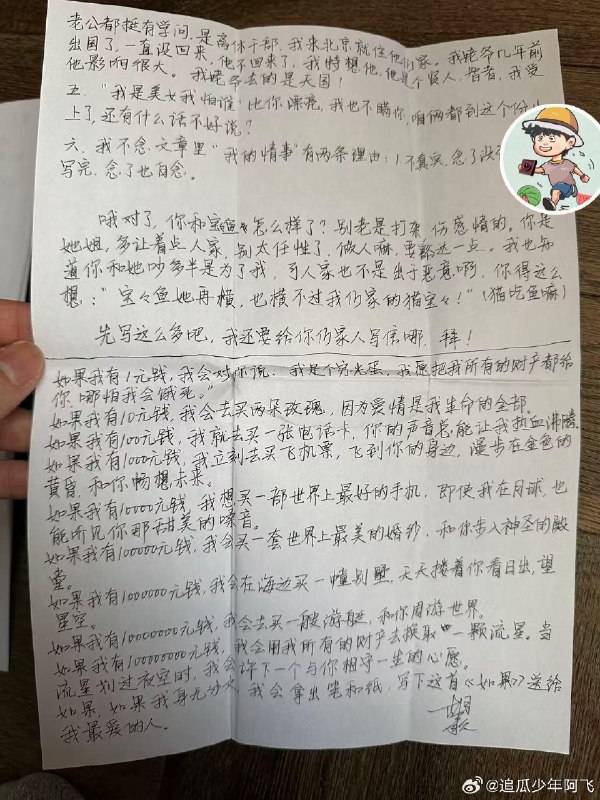 老公都挺有学问,是离休干部,我来北京就住他们家。我姥爷几年前
出国了,一直没回来,他不回来了,我特想他,他是个贤人、智者,我受
他影响很大。我姥爷去的是天国!
五.“我是美女我怕谁”比你漂亮,我也不瞒你,咱俩都到这个份儿
上了,还有什么话不好说?
六.我不念.文章里“我的情事”有两条理由:1.不真实,念了没
写完,念了也白念。
哦对了,你和宝鱼怎么样了?别老是打架,伤感情的。你是
她姐,多让着点人家,别太任性了,做人嘛,要豁达一点。我也知
道你和她吵多半是为了我,可人家也不是出于恶意啊,你得这么
想:“宝々鱼她再横,也横不过我们家的猫宝々!”(猫吃鱼嘛)
先写这么多吧,我还要给你们家人写信哪,拜!
如果我有1元钱,我会对你说:我是个穷光蛋,我愿把我所有的财产都给
你哪怕我会饿死。”
如果我有10元钱,我会去买两朵玫瑰,因为爱情是我生命的全部。
如果我有100元钱,我就去买一张电话卡,你的声音总能让我热血沸腾。
如果我有1000元钱,我立刻去买飞机票,飞到你的身边,漫步在金色的
黄昏,和你畅想未来。
如果我有10000元钱,我想买一部世界上最好的手机,即使我在月球,也
能听见你那甜美的嗓音。
如果我有100000元钱,我会买一套世界上最美的婚纱,和你步入神圣的殿
堂。
如果我有1000000元钱,我会在海边买一幢别墅,天天搂着你看日出,望
星空。
如果我有10000000元钱,我会去买一艘游艇,和你周游世界。
如果我有100000000元钱,我会用我所有的财产去换取一颗流星。当
流星划过夜空时,我会许下一个与你相守一生的心愿。
如果,如果我身无分文,我会拿出笔和纸,写下这首《如果》送给
我最爱的人。
@追瓜少年阿飞